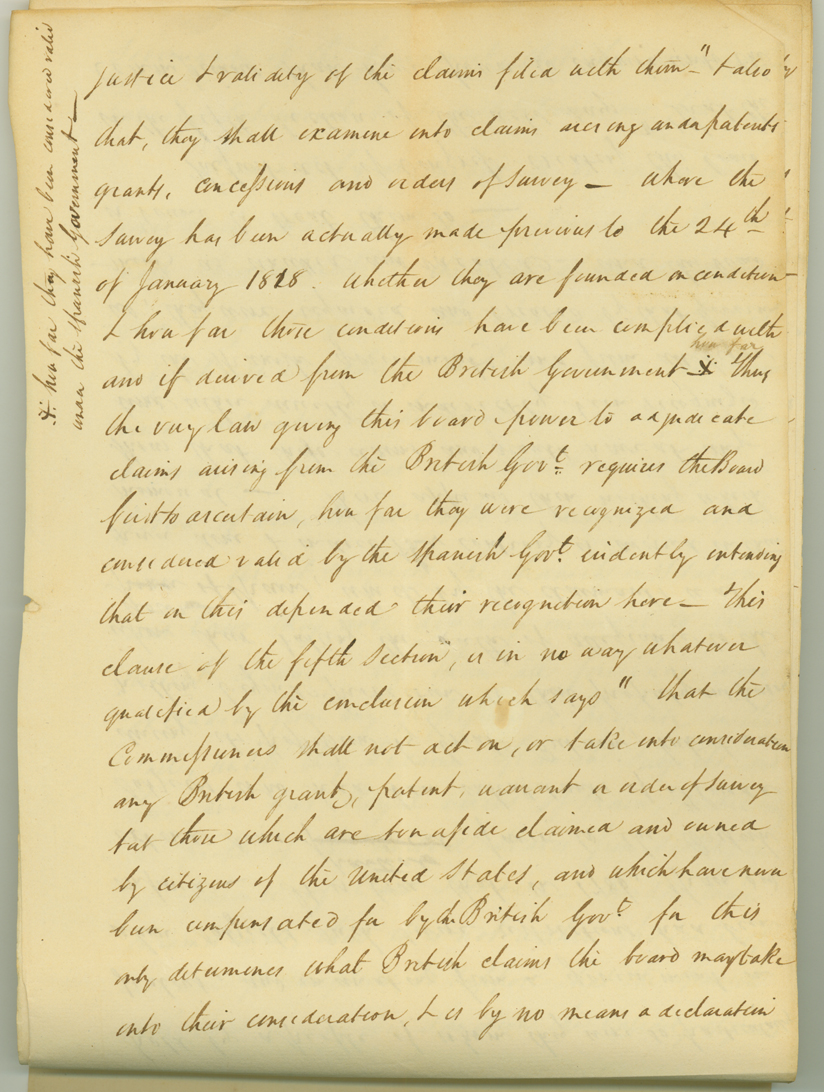 justice & validity of the claims filed with them - " & also "
that, they shall examine into claims arising under patents
grants, concessions and orders of Survey — where the "
Survey has been actually made previous to the 24th
of January 1818. whether they are founded on condition -
& how far those conditions have been complied with
and if derived from the British Government - ⁜ how far Thus
the very law giving this board power to adjudicate
claims arising from the British Govt. requires the Board
first to ascertain, how far they were recognized and
considered valid by the Spanish Govt. evidently intending
that on this depended their recognition here — This
clause of the fifth section, is in no way whatever
qualified by the conclusion which says " that the
Commissioners shall not act on, or take into consideration
any British grant, patent, warrant or order of Survey
but those which are bonafide claimed and owned
by citizens of the United States, and which have never
been compensated for by the British Govt. for this
only determines what British claims the board may take
into their consideration, & is by no means a declaration
⁜ how far they have been considered valid
under the Spanish Government —